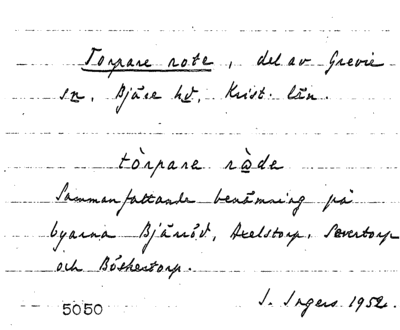 Torpare rote, del av Grevie
sn, Bjäre hd, Krist. län.
tòrpare rå̀de
Sammanfattande benämning på
byarna Bjäröd, Axelstorp, Severtorp
och Böskestorp.
5050 I. Ingers 1952.